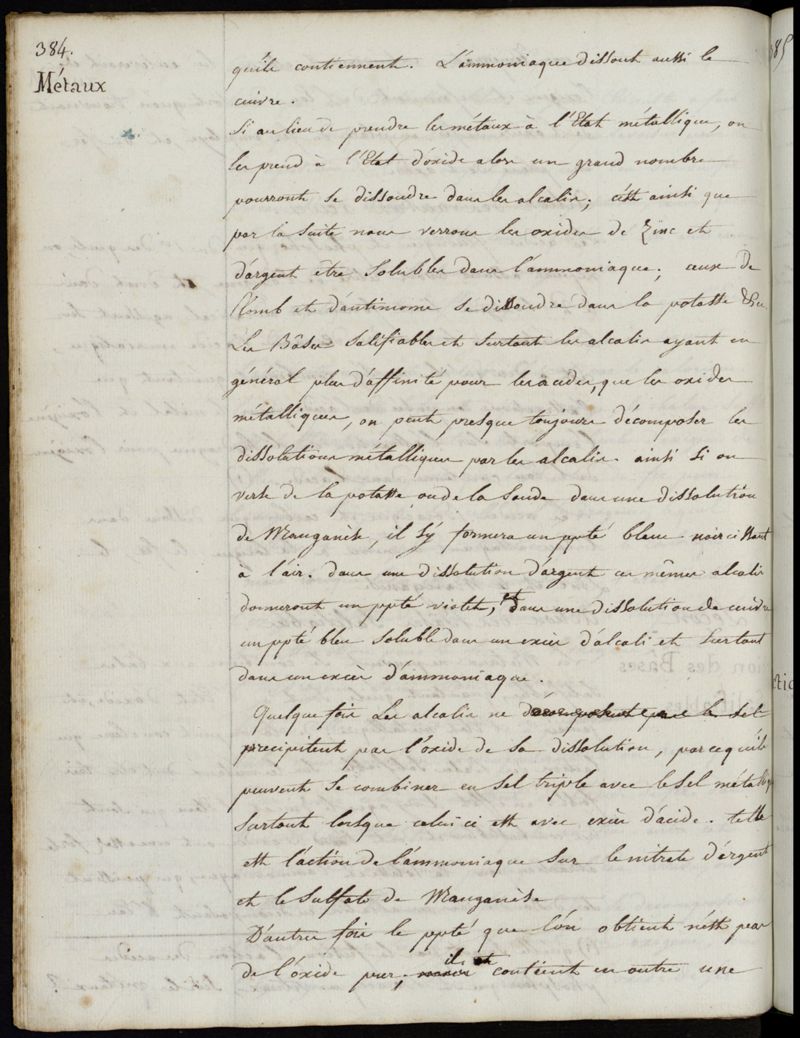 384.
Métaux
qu'ils contiennent. L'ammoniaque dissout aussi le
cuivre.
Si au lieu de prendre les métaux à l'Etat métallique, on
les prend à l'Etat d'oxide alors un grand nombre
pourront se dissoudre dans les alcalis; c'est ainsi que
par la suite nous verrons les oxides de Zinc et
d'argent être solubles dans l'ammoniaque; ceux de
Plomb et d'antimoine se dissoudre dans la potasse &c
Les Bâses Salifiables et surtout les alcalis ayant en
général plus d'affinité pour les acides, que les oxides
métalliques, on peut presque toujours décomposer les
dissolutions métalliques par les alcalis. ainsi si on
verse de la potasse ou de la Soude dans une dissolution
de Manganèse, il s'y formera un ppté blanc noircissant
à l'air. dans une dissolution d'argent ces mêmes alcalis
donneront un ppté violet, et dans une dissolution de cuivre
un ppté bleu soluble dans un excès d'alcali et surtout
dans un excès d'ammoniaque.
Quelque fois Les alcalis ne décomposent pas le sel
précipitent pas l'oxide de sa dissolution, parcequ'ils
peuvent se combiner en sel triple avec le sel métallique
surtout lorsque celui ci est avec excès d'acide. telle
est l'action de l'ammoniaque sur le nitrate d'argent
et le sulfate de Manganèse
D'autres fois le ppté que l'on obtient n'est pas
de l'oxide pur, il contient en outre une